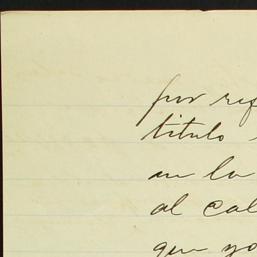 por ref
titulo
en la
al cal
que yo